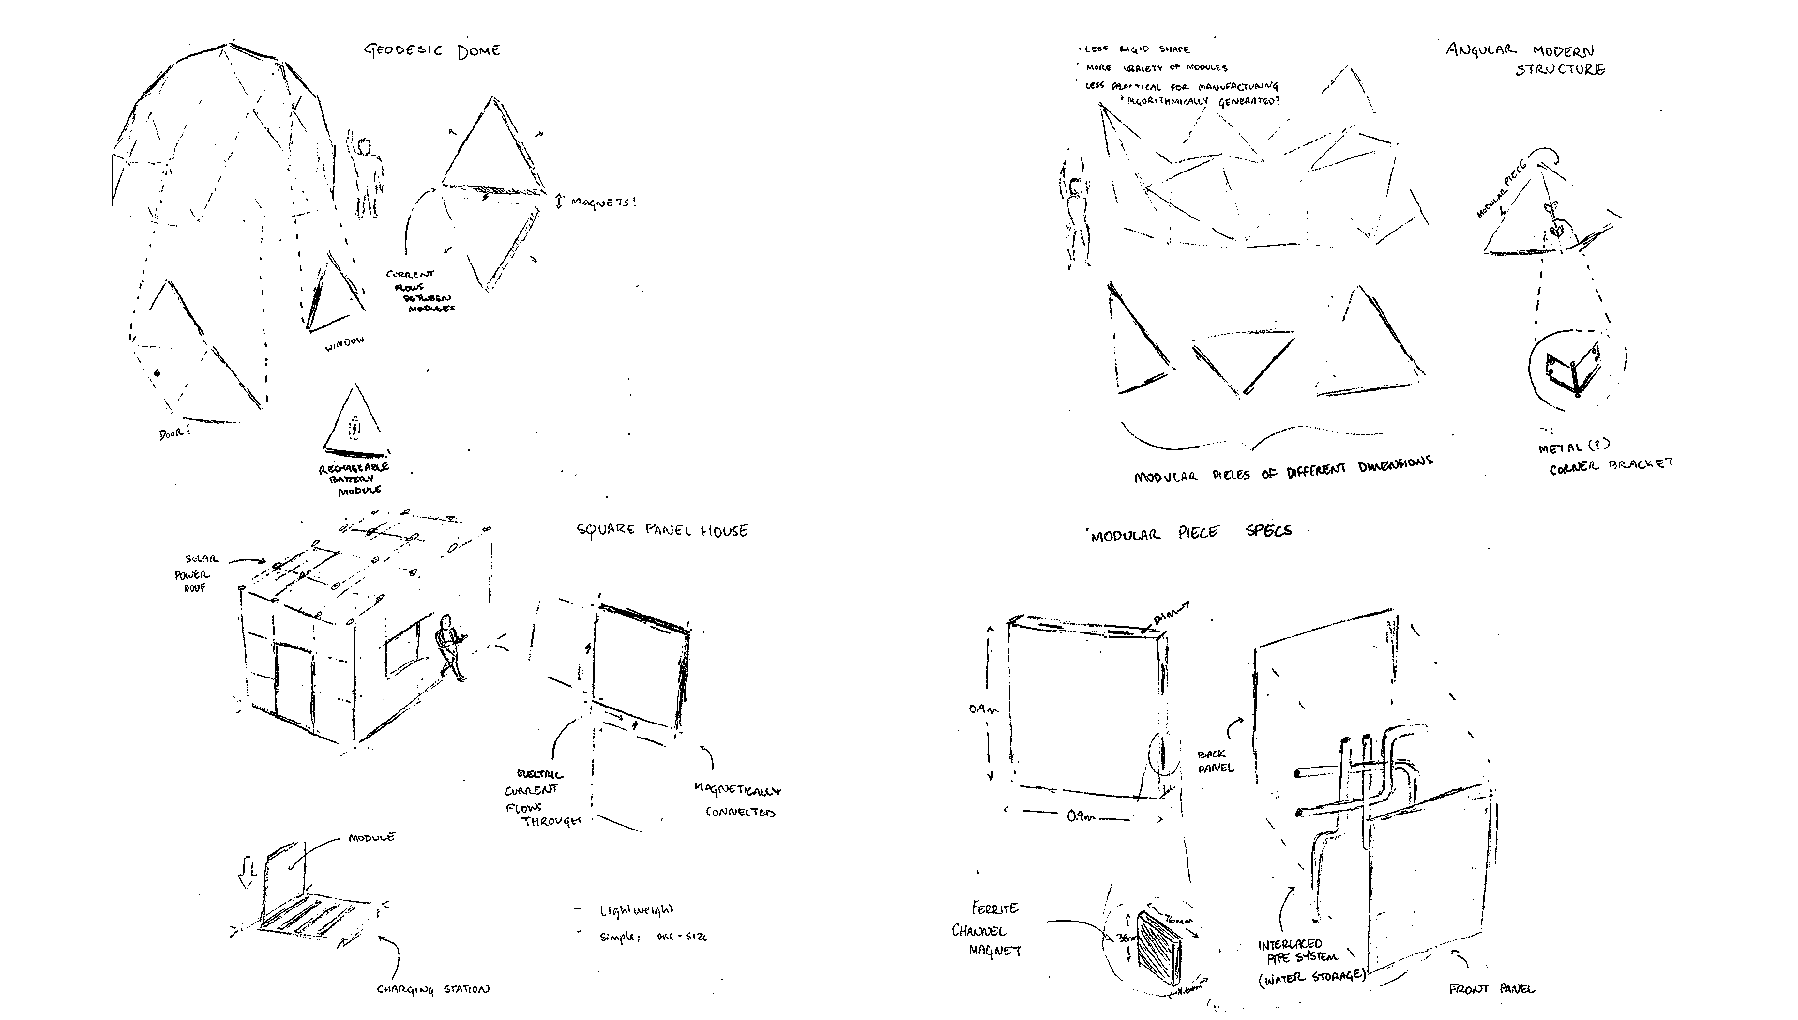 GEODESIC DOME
MAGNETS!
CURRENT
FLOWS
BETWEEN
MODULES
WINDOW
DOOR!
RECHARGEABLE
BATTERY
MODULE
ANGULAR MODERN
STRUCTURE
· LESS RIGID SHAPE
· MORE VARIETY OF MODULES
· LESS PRACTICAL FOR MANUFACTURING
* ALGORITHMICALLY GENERATED?
MODULAR PIECE
MODULAR PIECES OF DIFFERENT DIMENSIONS
METAL (?)
CORNER BRACKET
SQUARE PANEL HOUSE
SOLAR
POWER
ROOF
ELECTRIC
CURRENT
FLOWS
THROUGH
MAGNETICALLY
CONNECTED
MODULE
CHARGING STATION
- Lightweight
- Simple, one-size
MODULAR PIECE SPECS
0.1m
0.9m
0.9m
BACK
PANEL
FERRITE
CHANNEL
MAGNET
INTERLACED
PIPE SYSTEM
(WATER STORAGE)
FRONT PANEL